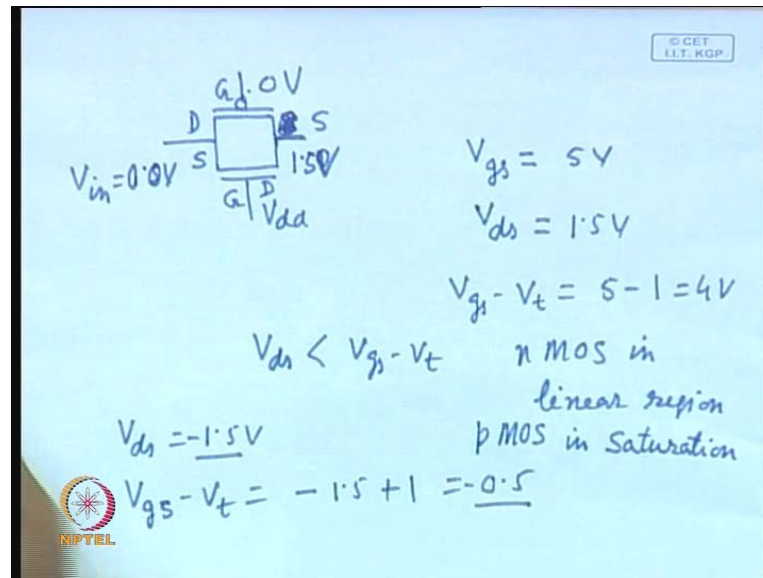 © CET
I.I.T. KGP
G 0V
D S
Vin=0.0V S 1.5V
G D
Vdd
Vgs = 5V
Vds = 1.5V
Vgs - Vt = 5 - 1 = 4V
Vds < Vgs - Vt nMOS in
linear region
Vds = -1.5V pMOS in Saturation
Vgs - Vt = -1.5 + 1 = -0.5
NPTEL